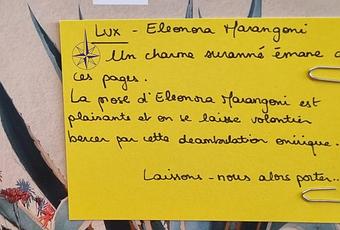 Lux - Eleonora Marangoni
Un charme suranné émane d
ces pages.
La prose d'Eleonora Marangoni est
plaisante et on se laisse volontier
bercer par cette déambulation onirique.
Laissons-nous alors porter...